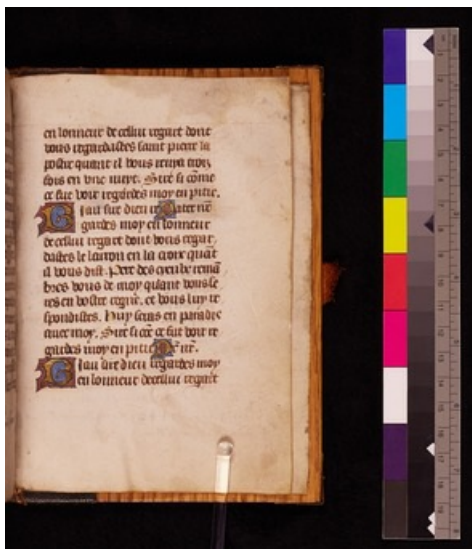 en lonneur de cellui regart dont
vous regardastes saint pierre la
postre quant il vous renya trois
fois en vne nuyt. Sire si cōme
ce fut voir regardes moy en pitie.
Biau sire dieu re Pater nr̄
gardes moy en lonneur
de cellui regart dont vous regar
dastes le larron en la croix quāt
il vous dist. des cieulx remā
bres vous de moy quant vous se
res en vostre regne. et vous luy re
spondistes. Huy seras en paradis
auec moy. Sire si cōe ce fut voir re
gardes moy en pitie nr̄.
Biau sire dieu regardes moy
en lonneur decellui regart